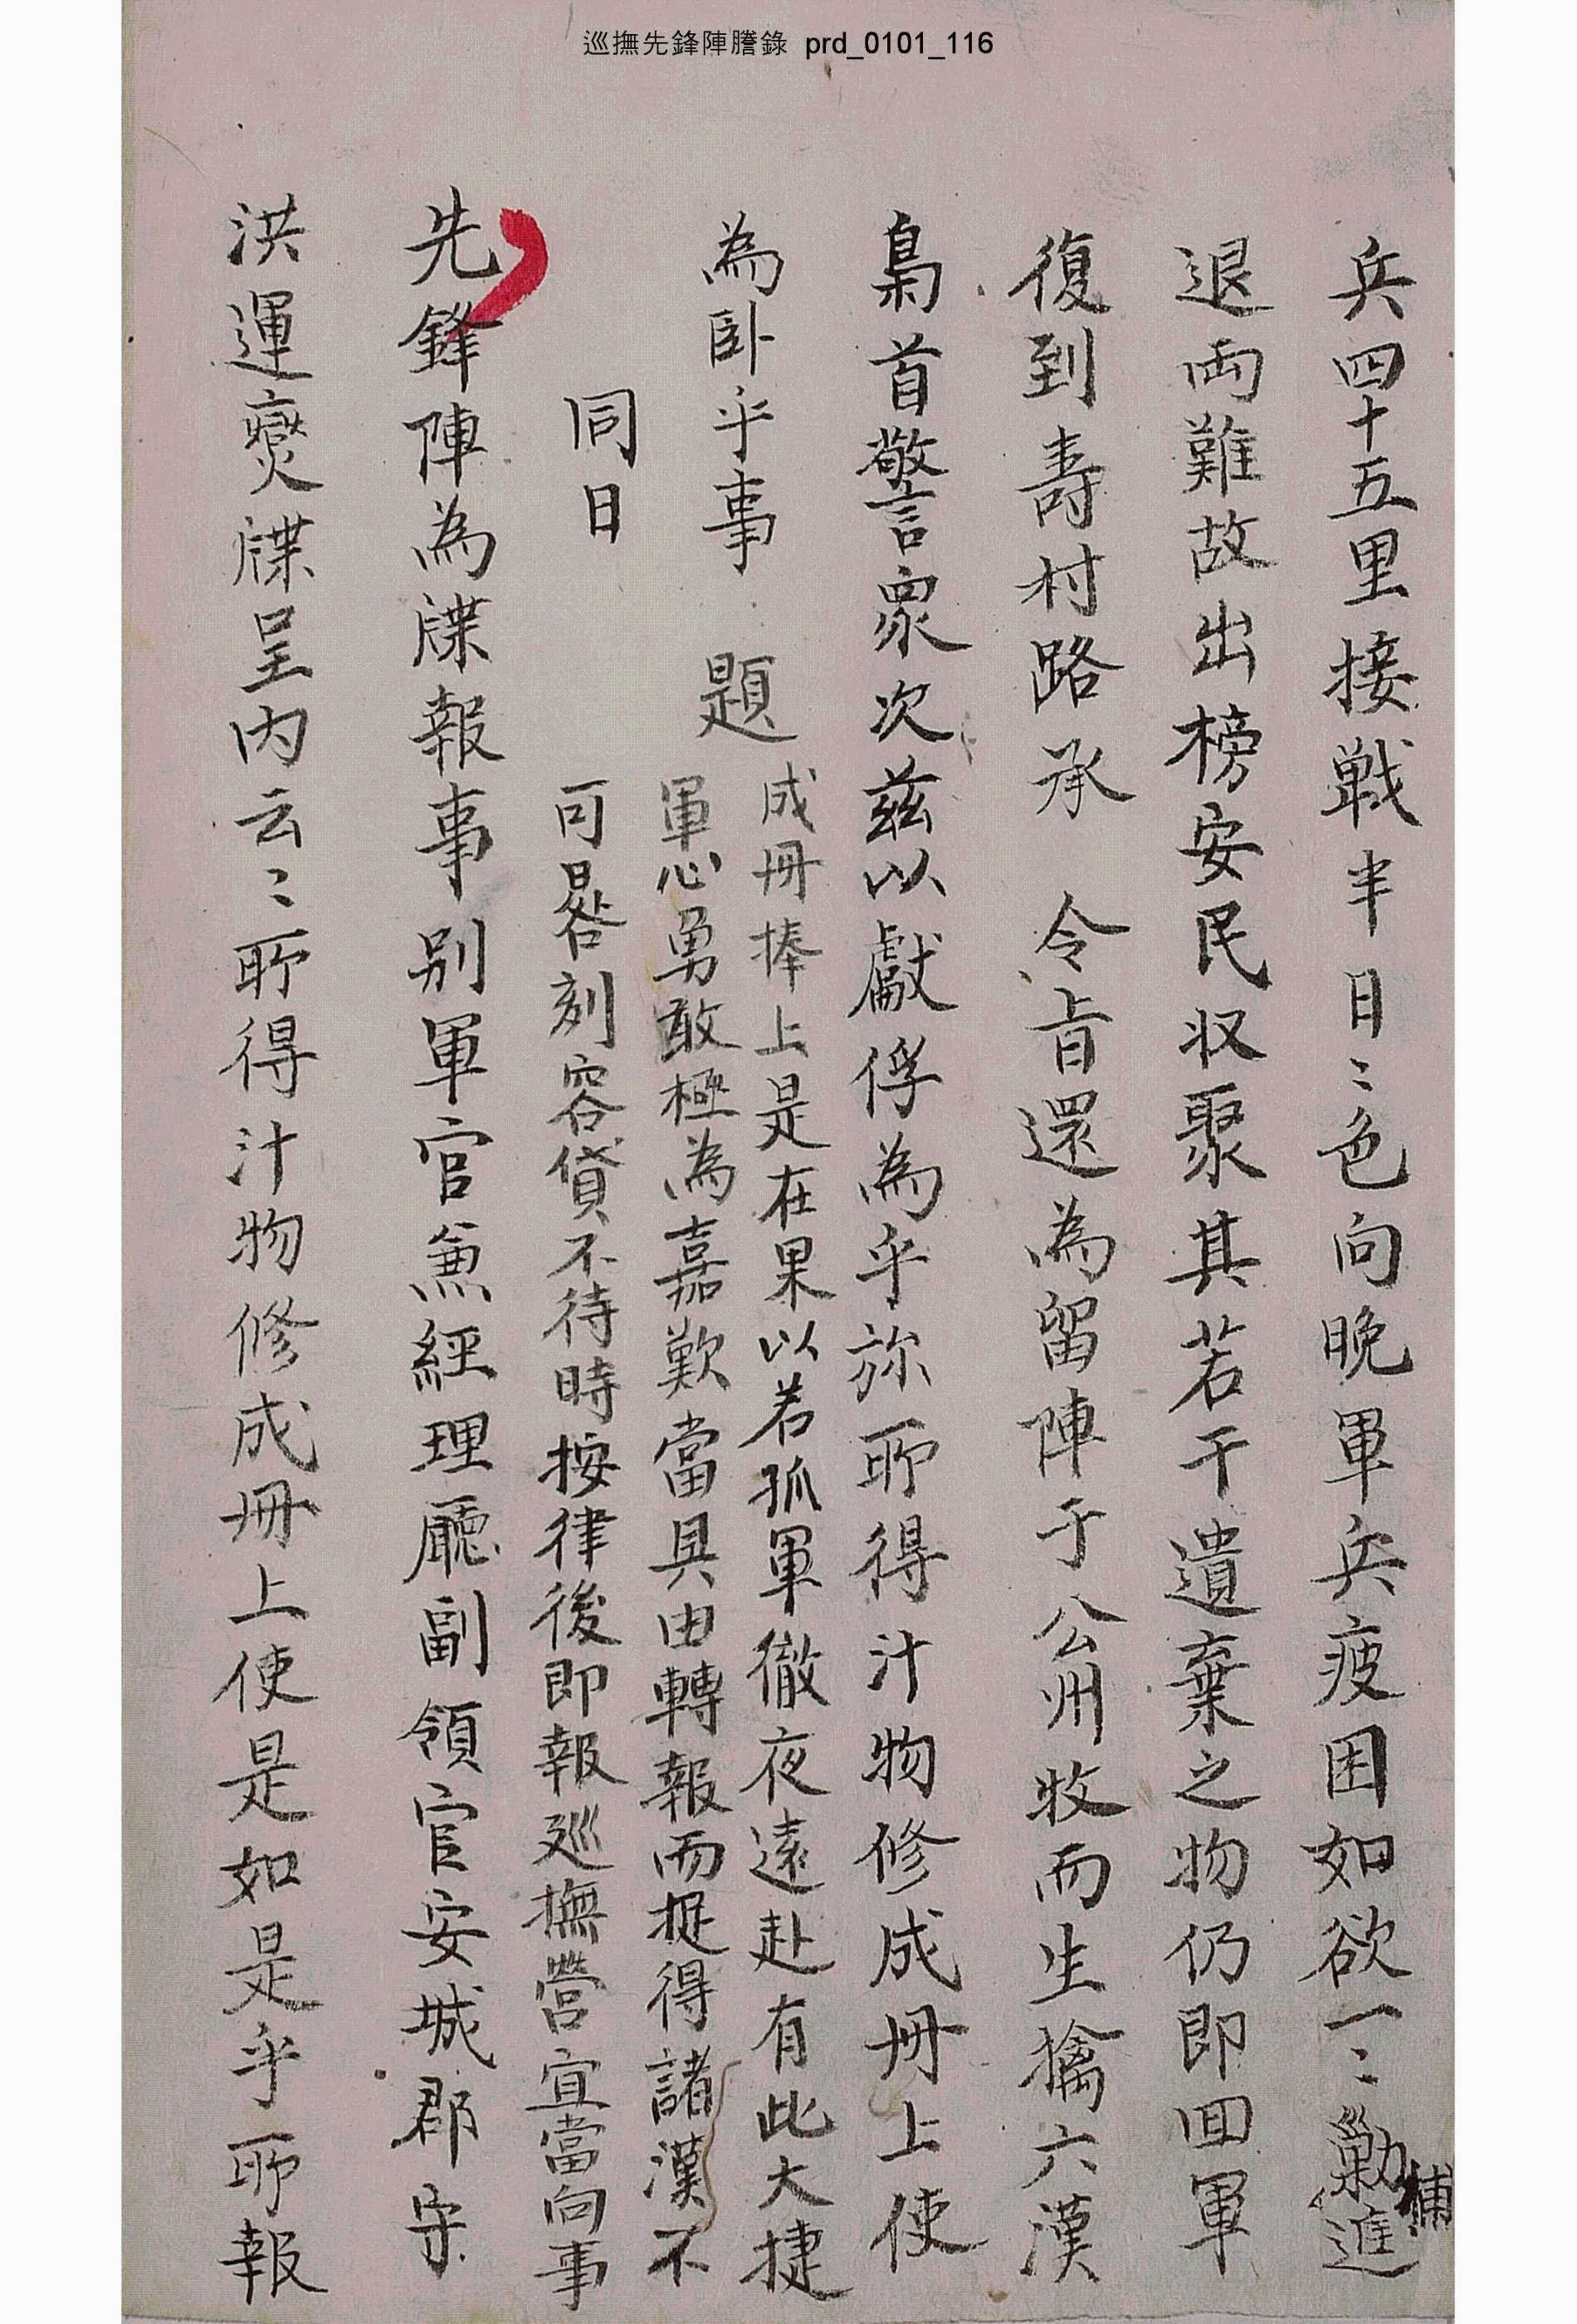 巡撫先鋒陣謄錄 prd_0101_116
兵四十五里接戰半日〻色向晚軍兵疲困如欲一〻勦捕進
退両難故出榜安民収聚其若干遺棄之物仍即回軍
復到壽村路承 令旨還為留陣于公州牧而生擒六漢
梟首警衆次茲以獻俘為乎旀所得汁物修成冊上使
為卧乎事 題
成冊捧上是在果以若孤軍徹夜遠赴有此大捷
軍心勇敢極為嘉歎當具由轉報而捉得諸漢不
可晷刻容貸不待時按律後即報廵撫營宜當向事
同日
先鋒陣為牒報事別軍官兼經理廳副領官安城郡守
洪運爕牒呈內云〻所得汁物修成冊上使是如是乎所報